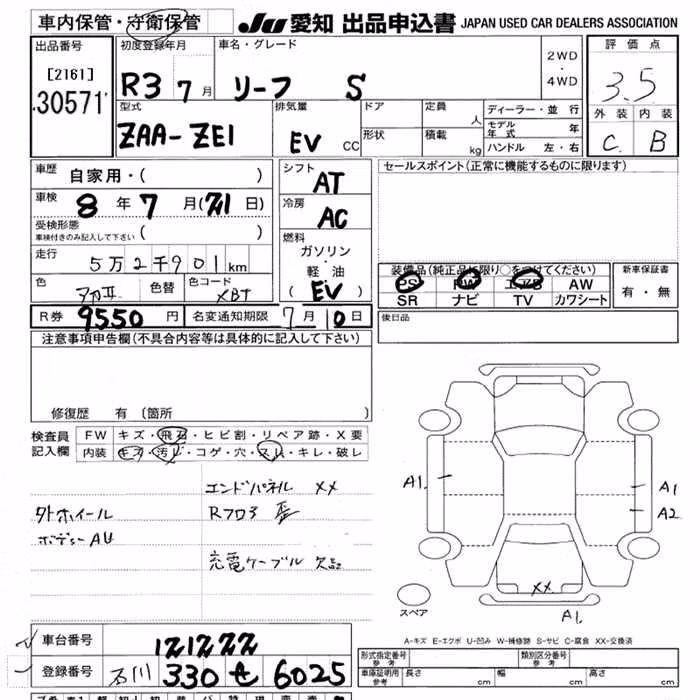 車内保管・守衛保管 JU 愛知 出品申込書 JAPAN USED CAR DEALERS ASSOCIATION
出品番号 初度登録年月 車名・グレード 2WD・4WD 評価点
[2161]
30571 R3 7月 リーフ S 3.5
型式 排気量 ドア 定員 人 ディーラー・並行 外装 内装
ZAA-ZE1 EV CC 形状 積載 kg モデル年式 年 C B
ハンドル 左・右
車歴 自家用・( ) シフト AT セールスポイント(正常に機能するものに限ります)
車検 8年7月(21日) 冷房 AC
受検形態 車検付きのみ記入して下さい ( )
燃料 ガソリン・軽油 (EV)
走行 5万2千901km
装備品(純正品に限り○をつけてください) 新車保証書
PS PW エアB AW 有・無
SR ナビ TV カワシート
色 色替 色コード XBJ
R券 9550円 名変通知期限 7月10日 後日品
注意事項申告欄(不具合内容等は具体的に記入して下さい)
修復歴 有 (箇所 )
検査員記入欄 FW キズ・飛石・ヒビ割・リペア跡・X要
内装 キズ・汚レ・コゲ・穴・スレ・キレ・破レ
エンドパネル XX
外ホイール Rフロア
ボディーAU
充電ケーブル 欠品
A1 A1
A2
XX
スペア A1
A-キズ E-エクボ U-凹み W-補修跡 S-サビ C-腐食 XX-交換済
車台番号 121222
登録番号 石川 330 せ 6025
形式指定番号 参考 類別区分番号 参考
車庫証明用 参考 長さ cm 幅 cm 高さ cm